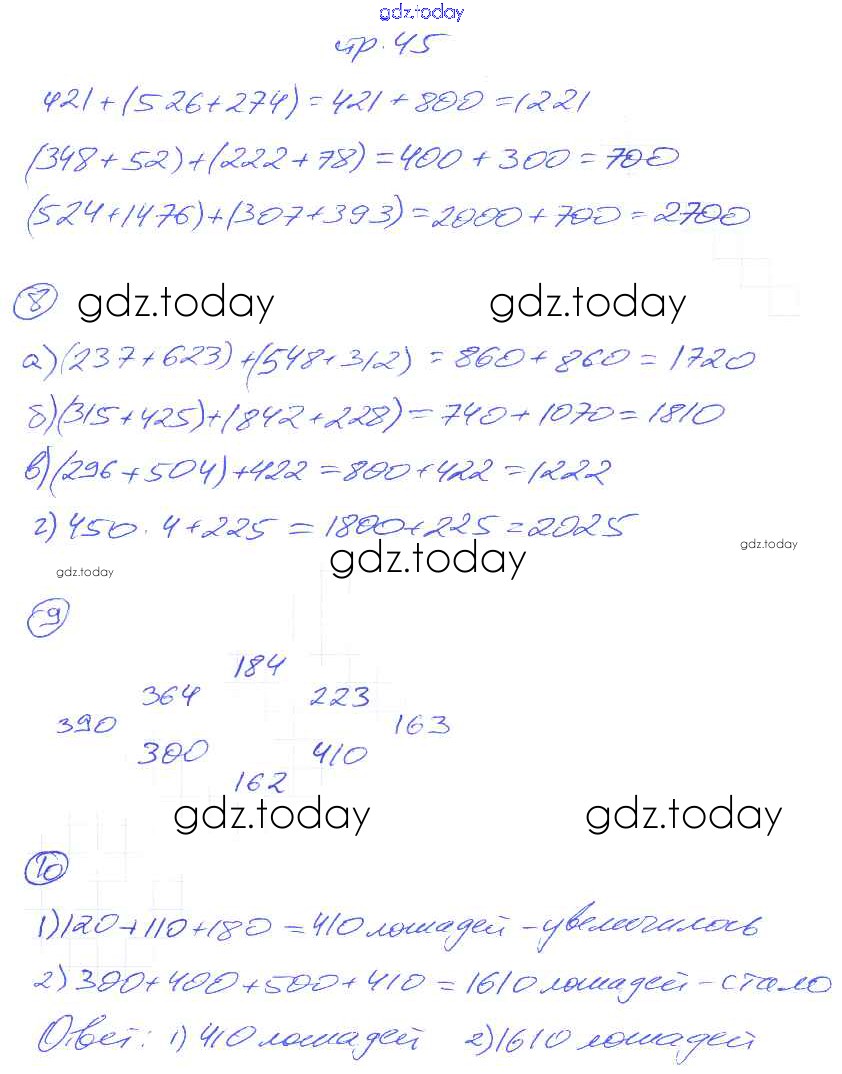 gdz.today
стр. 45
421+(526+274)=421+800=1221
(348+52)+(222+78)=400+300=700
(524+1476)+(307+393)=2000+700=2700
8 gdz.today gdz.today
а)(237+623)+(548+312)=860+860=1720
б)(315+425)+(842+228)=740+1070=1810
в)(296+504)+422=800+422=1222
г)450·4+225=1800+225=2025
gdz.today gdz.today gdz.today
9
184
364 223
390 163
300 410
162
gdz.today gdz.today
10
1)120+110+180=410 лошадей-увеличилось
2)300+400+500+410=1610 лошадей-стало
Ответ: 1)410 лошадей 2)1610 лошадей